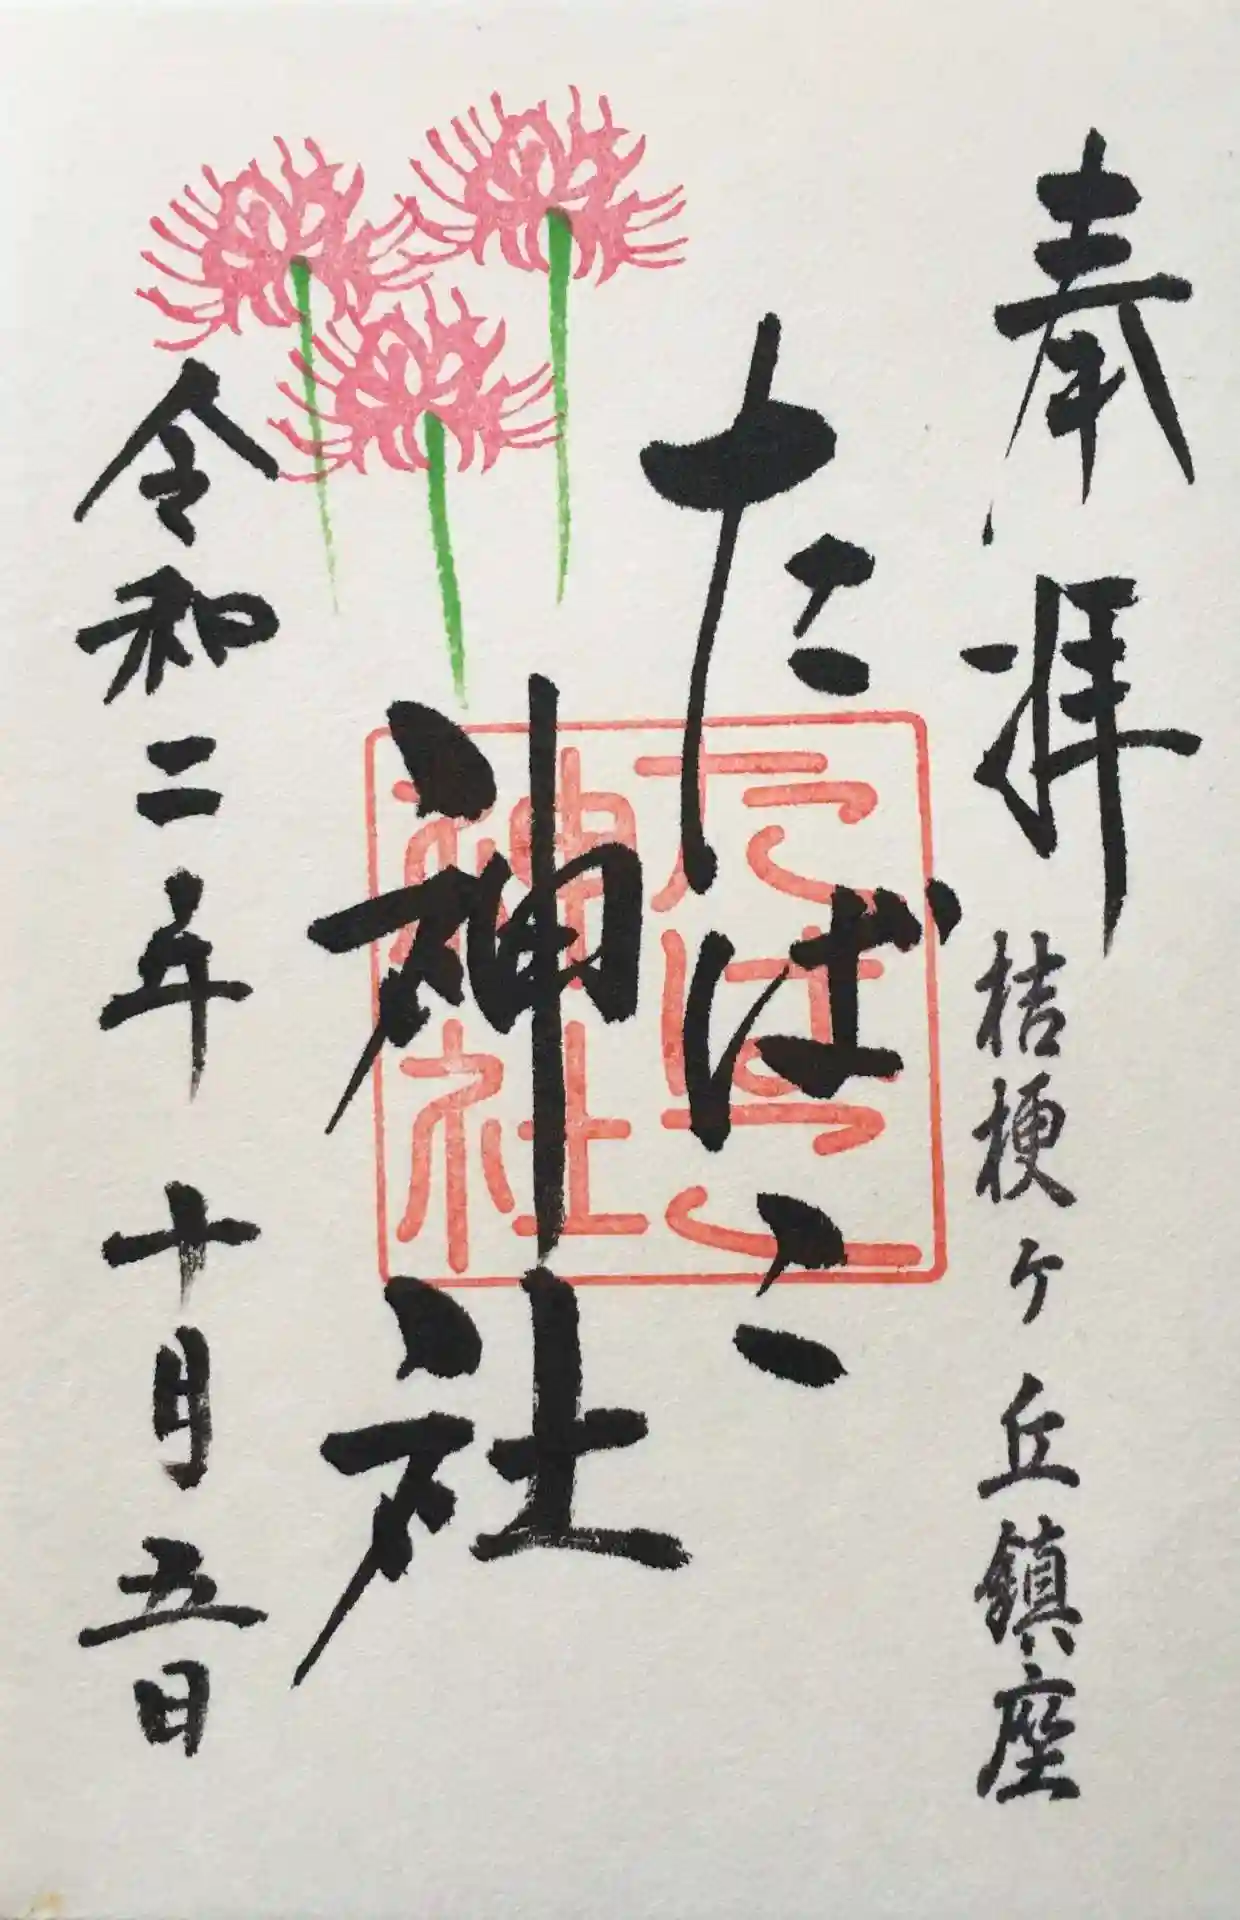 奉拝
桔梗ヶ丘鎮座
たばこ
神社
たばこ
神社
令和二年 十月五日